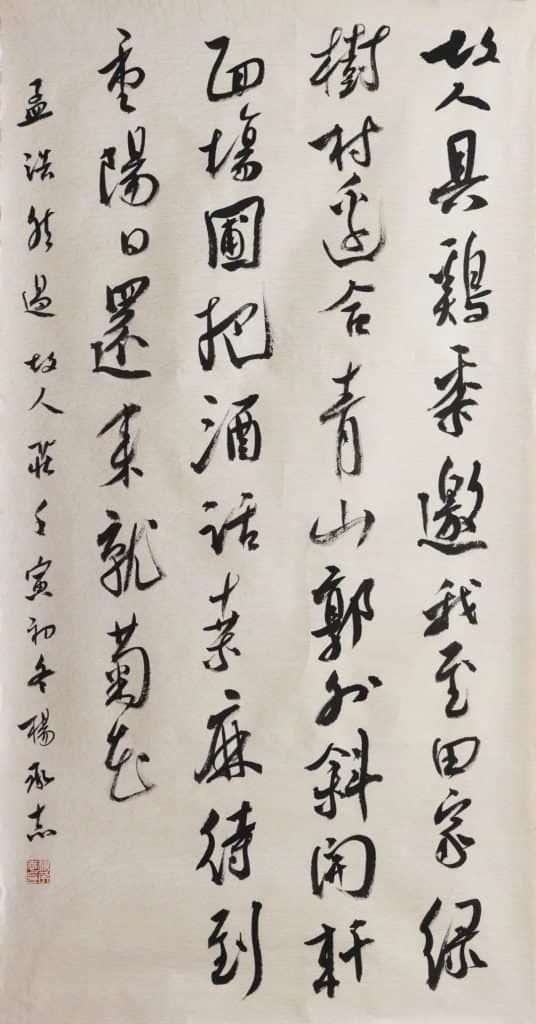 故人具鷄黍邀我至田家緑
樹村邊合青山郭外斜開軒
面場圃把酒話桑麻待到
重陽日還来就菊花
孟浩然過故人莊壬寅初冬楊承志